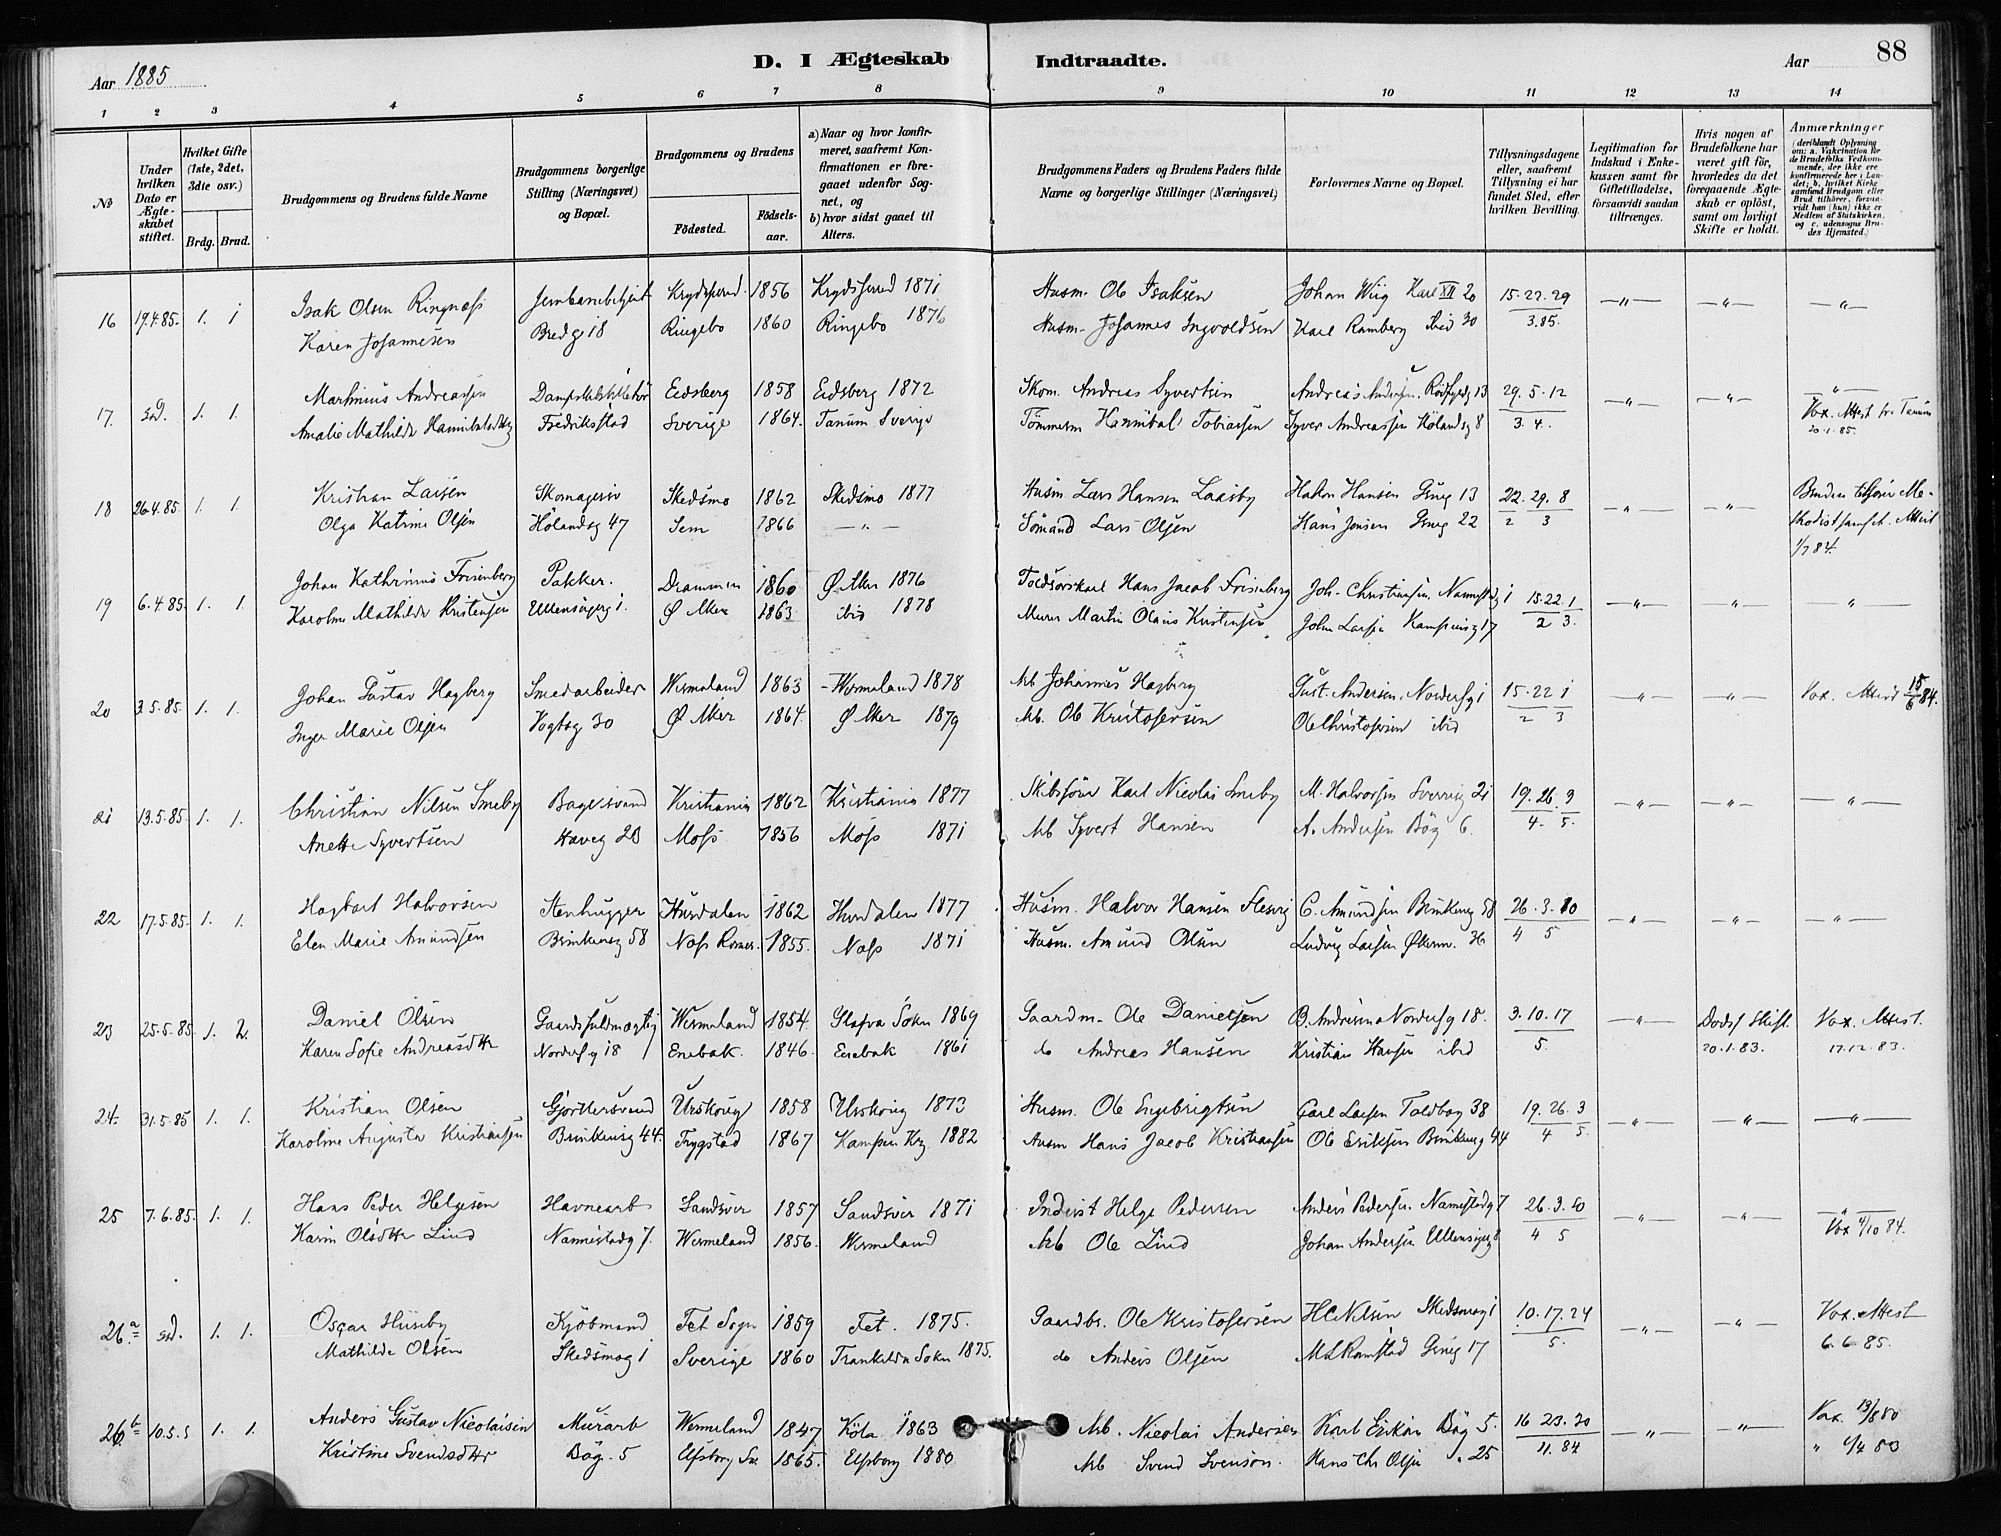 Aar 1885
D. I Ægteskab Indtraadte.
Aar
88
1 2 3 4 5 6 7 8 9 10 11 12 13 14
No
Under hvilken Dato er Ægteskabet stiftet.
Hvilket Gifte (1ste, 2det, 3die osv.)
Brdg. Brud.
Brudgommens og Brudens fulde Navne
Brudgommens borgerlige Stilling (Næringsvei) og Bopæl.
Brudgommens og Brudens
Födested. Födsels-aar.
a) Naar og hvor konfirmeret, saafremt Konfirmationen er foregaaet udenfor Sognet, og
b) hvor sidst gaaet til Alters.
Brudgommens Faders og Brudens Faders fulde Navne og borgerlige Stillinger (Næringsvei)
Forlovernes Navne og Bopæl.
Tillysningsdagene eller, saafremt Tillysning ei har fundet Sted, efter hvilken Bevilling.
Legitimation for Indskud i Enkekassen samt for Giftetilladelse, forsaavidt saadan tiltrænges.
Hvis nogen af Brudefolkene har været gift för, hvorledes da det foregaaende Ægteskab er oplöst, samt om lovligt Skifte er holdt.
Anmærkninger (deriblandt Oplysning om: a. Vakcination for de Brudefolks Vedkommende, der ikke ere konfirmerede her i Landet; b. hvilket Kirkesamfund Brudgom eller Brud tilhörer, forsaavidt han (hun) ikke er Medlem af Statskirken, og c. udensogns Brudes Hjemsted.)
16 19.4.85. 1. 1 Isak Olsen Ringnæs Bredg 18 Krydsherred 1856 Krydsherred 1871 Husm. Ole Isaksen Johan Wiig Karl XII 20 15.22.29 —"— —"— —"—
Karen Johannesen Ringebo 1860 Ringebo 1876 Husm. Johannes Ingvoldsen Karl Ramberg ibid 30 3.85.
17. sd. 1. 1. Martinius Andreassen Eidsberg 1858 Eidsberg 1872 Skom. Andreas Syvertsen Andreas Andersen 13 29.5.12 —"— —"— —"—
Amalie Mathilde Hannibalsdtr Fredriksstad Sverige 1864. Tanum Sverige Tömmerm Hannibal Tobiassen Syver Andreassen Hölandsg 8 3.4. Vax. Attest fra Tanum
20.1.85.
18 26.4.85. 1. 1. Kristian Larsen Skomagersv Skedsmo 1862 Skedsmo 1877 Husm. Lars Hansen Laasby Hakon Hansen Grueg 13 22.29.8 —"— —"— Bruden tilhörer Me-
Olga Katrine Olsen Hölandsg 47 Sem 1866 —"— Sömand Lars Olsen Hans Jensen Grueg 22 2 3 thodistsamf. Attest
1/7 84.
19 6.4.85. 1. 1. Johan Kathrinus Frisenberg Pakker. Drammen 1860 Ø Aker 1876 Hans Jacob Frisenberg Joh. Christiansen, Nannestadg 1 15.22.1 —"— —"— —"—
Karoline Mathilde Kristensen Ullensagerg 1. Ø Aker 1863 ibid 1878 Murer Martin Olaus Kristensen John Larsen Kampensg 17 2 3.
20 3.5.85. 1. 1. Johan Gustav Hagberg Smedarbeider Wermeland 1863 Wermeland 1878 Arb Johannes Hagberg Gust. Andersen, Norderhg 1 15.22 1 —"— —"— Vax. Attest 15/6 84.
Inger Marie Olsen Vogtsg 30 Ø Aker 1864. Ø Aker 1879 Arb. Ole Kristofersen Ole Christofersen ibid 2 3
21 13.5.85. 1. 1. Christian Nilsen Smeby Bagersvend Kristiania 1862 Kristiania 1877 Skibsförer Karl Nicolai Smeby M. Halvorsen Sverreg 21 19.26.3 —"— —"— —"—
Anette Syvertsen Haveg 2B Moss 1856 Moss 1871 Arb Syvert Hansen A. Andersen Bög 6. 4. 5.
22 17.5.85. 1. 1. Hagbart Halvorsen Stenhugger Hurdalen 1862 Hurdalen 1877 Husm. Halvor Hansen C. Amundsen Brinkeng 58 26.3.10 —"— —"— —"—
Elen Marie Amundsen Brinkensg 58 Næs Romer. 1855. Næs 1871 Husm. Amund Olsen Ludvig Larsen Økern. 36 4 5
23 25.5.85. 1. 2. Daniel Olsen Gaardsfuldmægtig Wermeland 1854. Glafva Sokn 1869 Gaardm. Ole Danielsen B. Andersen Norderhg 18. 3.10.17 —"— Dödsf. Skift. Vax. Attest.
Karen Sofie Andreasdtr Norderhg 18 Enebak. 1846. Enebak 1861 do Andreas Hansen Kristian Hansen ibid 5. 20.1.83. 17.12.83.
24. 31.5.85 1. 1. Kristian Olsen Gjörtlersvend Urskoug 1858 Urskoug 1873 Husm. Ole Engebrigtsen Carl Larsen Toldbog 38 19.26.3 —"— —"— —"—
Karoline Augusta Kristiansen Brinkensg 44. Trygstad 1867 Kampen K. 1882 Husm Hans Jacob Kristiansen Ole Eriksen Brinkeng 44 4 5.
25 7.6.85. 1. 1. Hans Peder Helgesen Havnearb Sandsvær 1857 Sandsvær 1871 Inderst Helge Pedersen Anders Pedersen Nannestadg 7 26.3.10 —"— —"— —"—
Karin Olsdtr Lind Nannestadg 7. Wermeland 1856. Wermeland Arb Ole Lind Johan Andersen Ullensagerg 8 4 5 Vax 4/10 84.
26 a sd. 1. 1. Oscar Huseby Kjöbmand Fet Sogn 1859 Fet. 1875. Gaardbr. Ole Kristofersen H C Nilsen Skedsmog 1 10.17.24 —"— —"— Vax. Attest
Mathilde Olsen Skedsmog 1 Sverige 1860 Trankilda Sokn 1875. do Anders Olsen M L Ramstad Grueg 17 5. 6.6.85.
26 b 10.5.5 1. 1. Anders Gustav Nicolaisen Murarb Wermeland 1847 Köla 1863 Arb. Nicolai Andersen Karl Eriksen Bög 5. 16 23.30 —"— —"— Vax. 13/8 80
Kristine Svendsdtr Bög. 5 Elfsborg Sv 1865. Elfsborg 1880 Arb Svend Svenson. Hans Chr Olsen ". 25 11.84 " 6/4 80